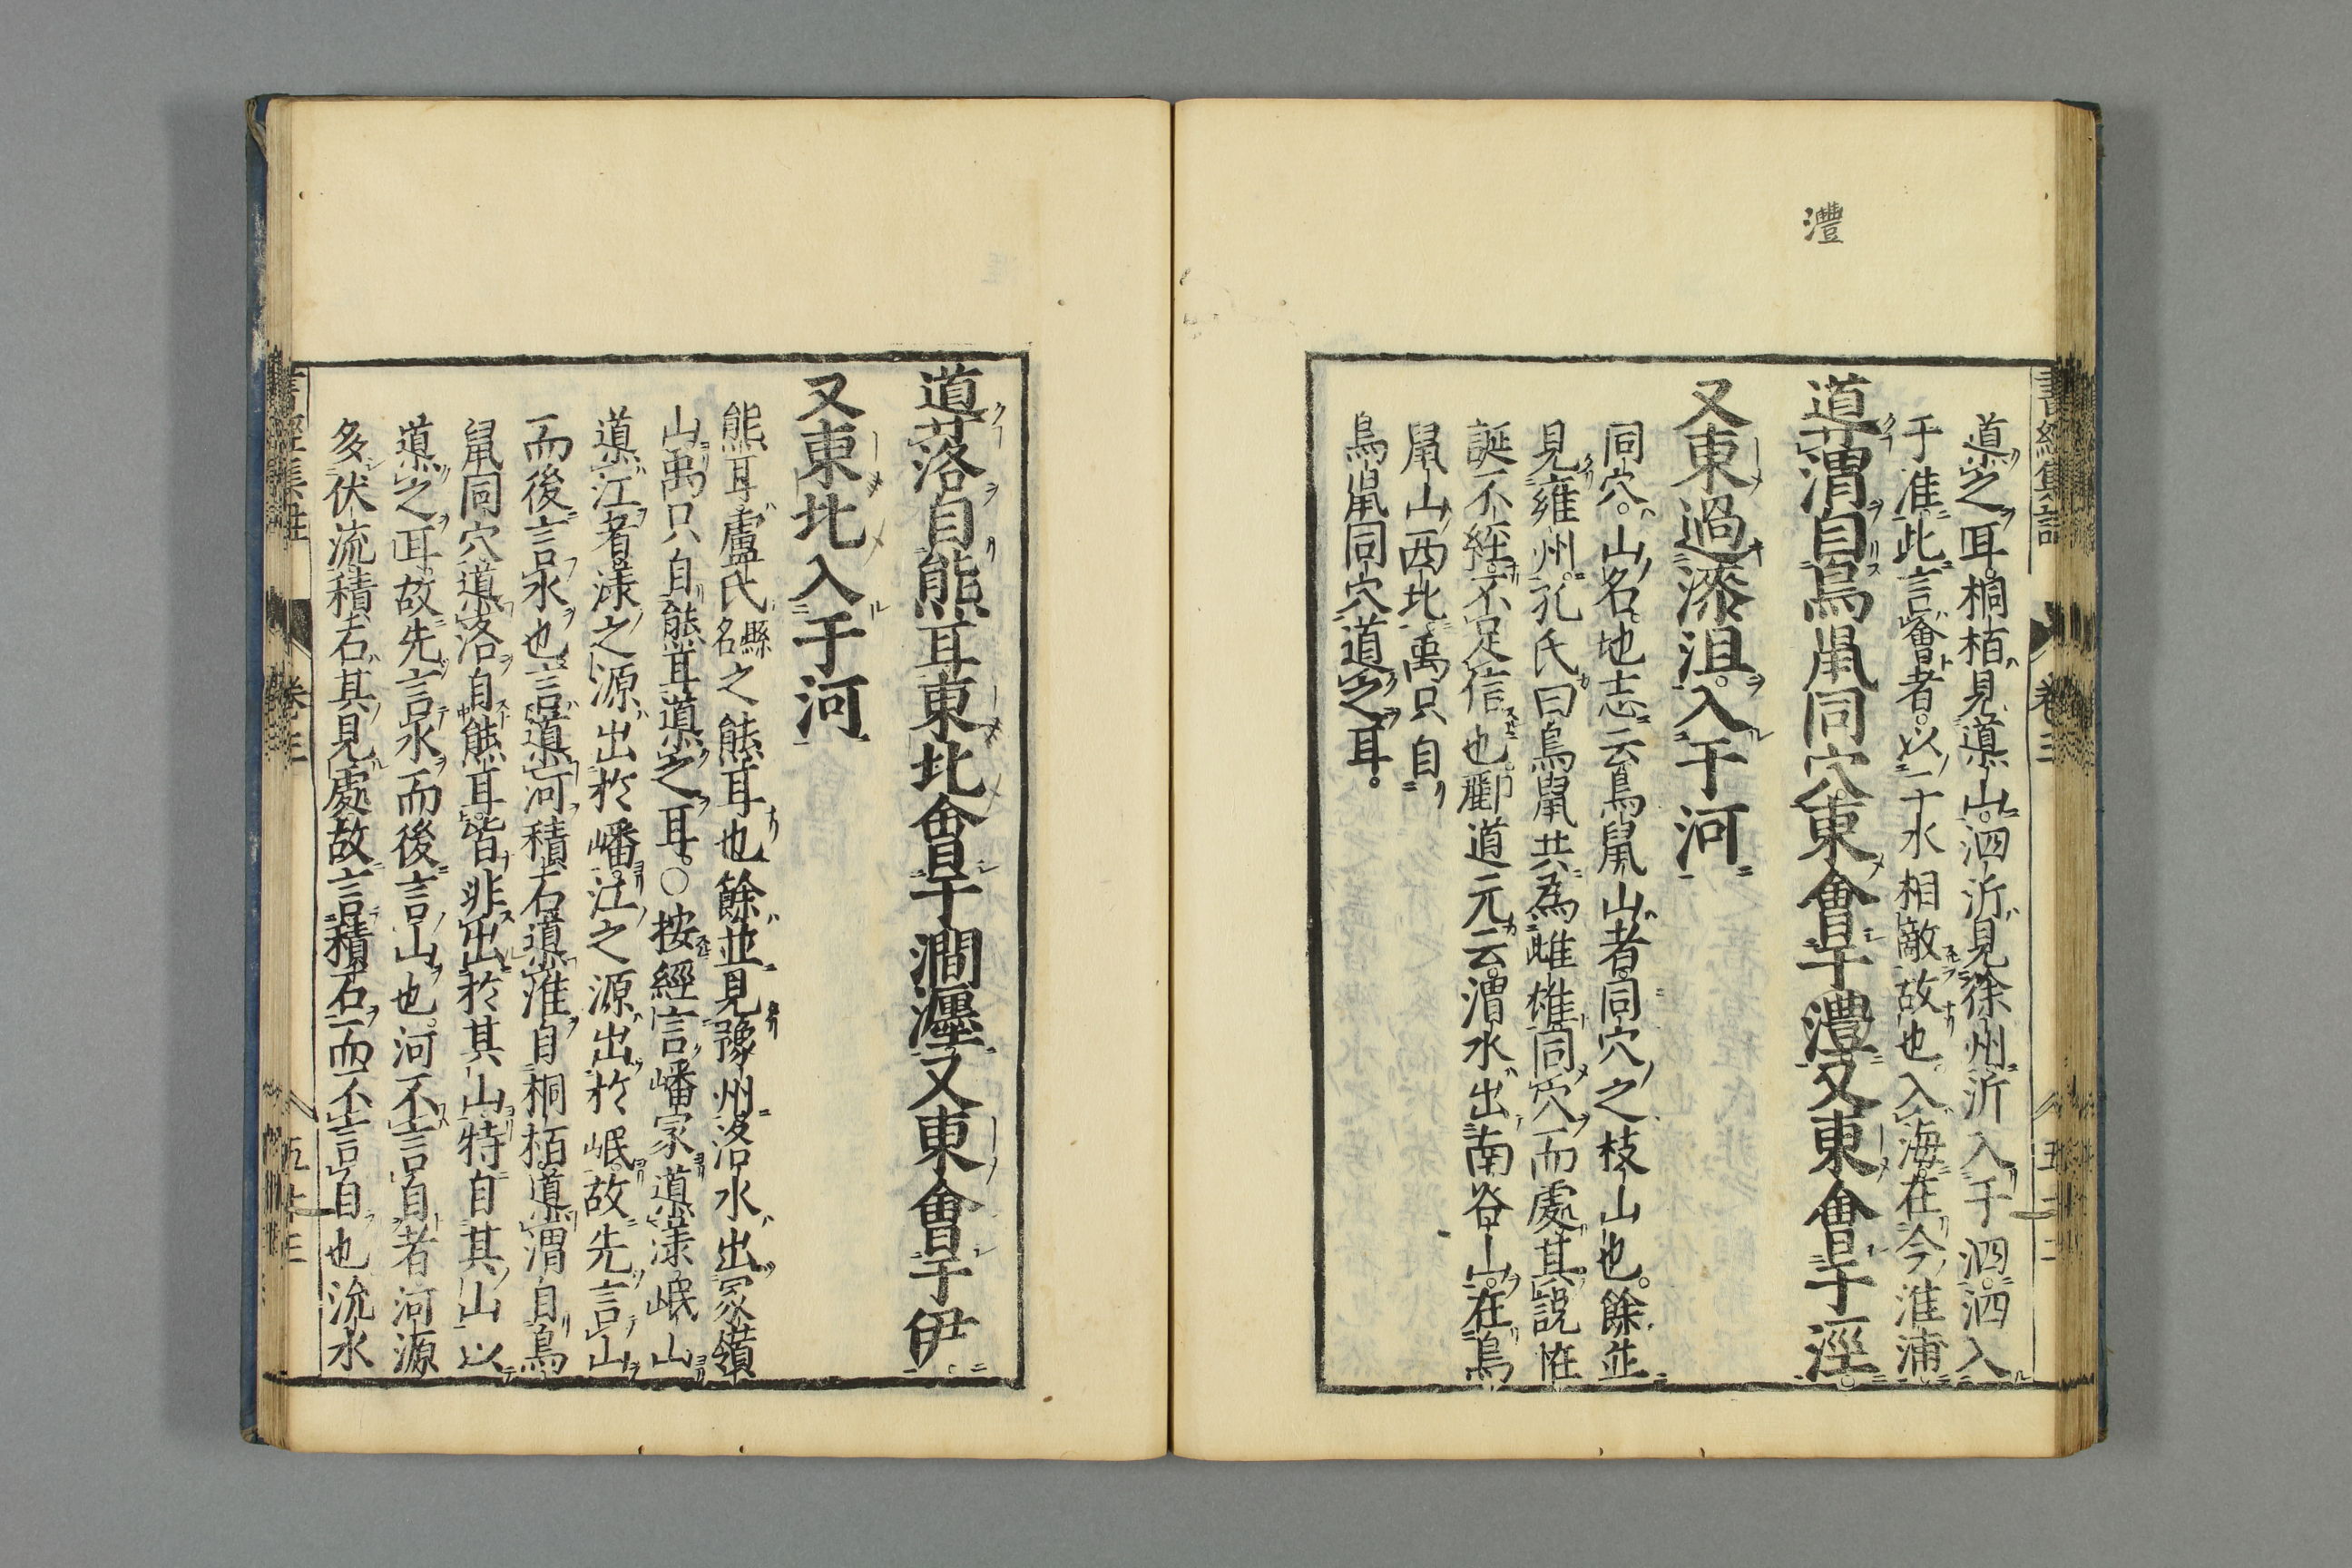 灃
導之耳桐栢見導山泗沂見徐州沂入于泗泗入
于淮此言會者以二水相敵故也入海在今淮浦
導渭自鳥鼠同穴東會于灃又東會于涇
又東過漆沮入于河
同穴山名地志云鳥鼠山者同穴之枝山也餘並
見雍州孔氏曰鳥鼠共為雌雄同穴而處其説恠
誕不經不足信也酈道元云渭水出南谷山在鳥
鼠山西北禹只自
鳥鼠同穴導之耳
導洛自熊耳東北會于澗瀍又東會于伊
又東北入于河
熊耳盧氏縣名之熊耳也餘並見豫州洛水出冢嶺
山禹只自熊耳導之耳○按經言嶓冢導漾岷山
導江者漾之源出於嶓江之源出於岷故先言山
而後言水也言導河積石導淮自桐栢導渭自鳥
鼠同穴導洛自熊耳皆非出於其山特自其山以
導之耳故先言水而後言山也河不言自者河源
多伏流積石其見處故言積石而不言自也沇水
書經集註 卷三